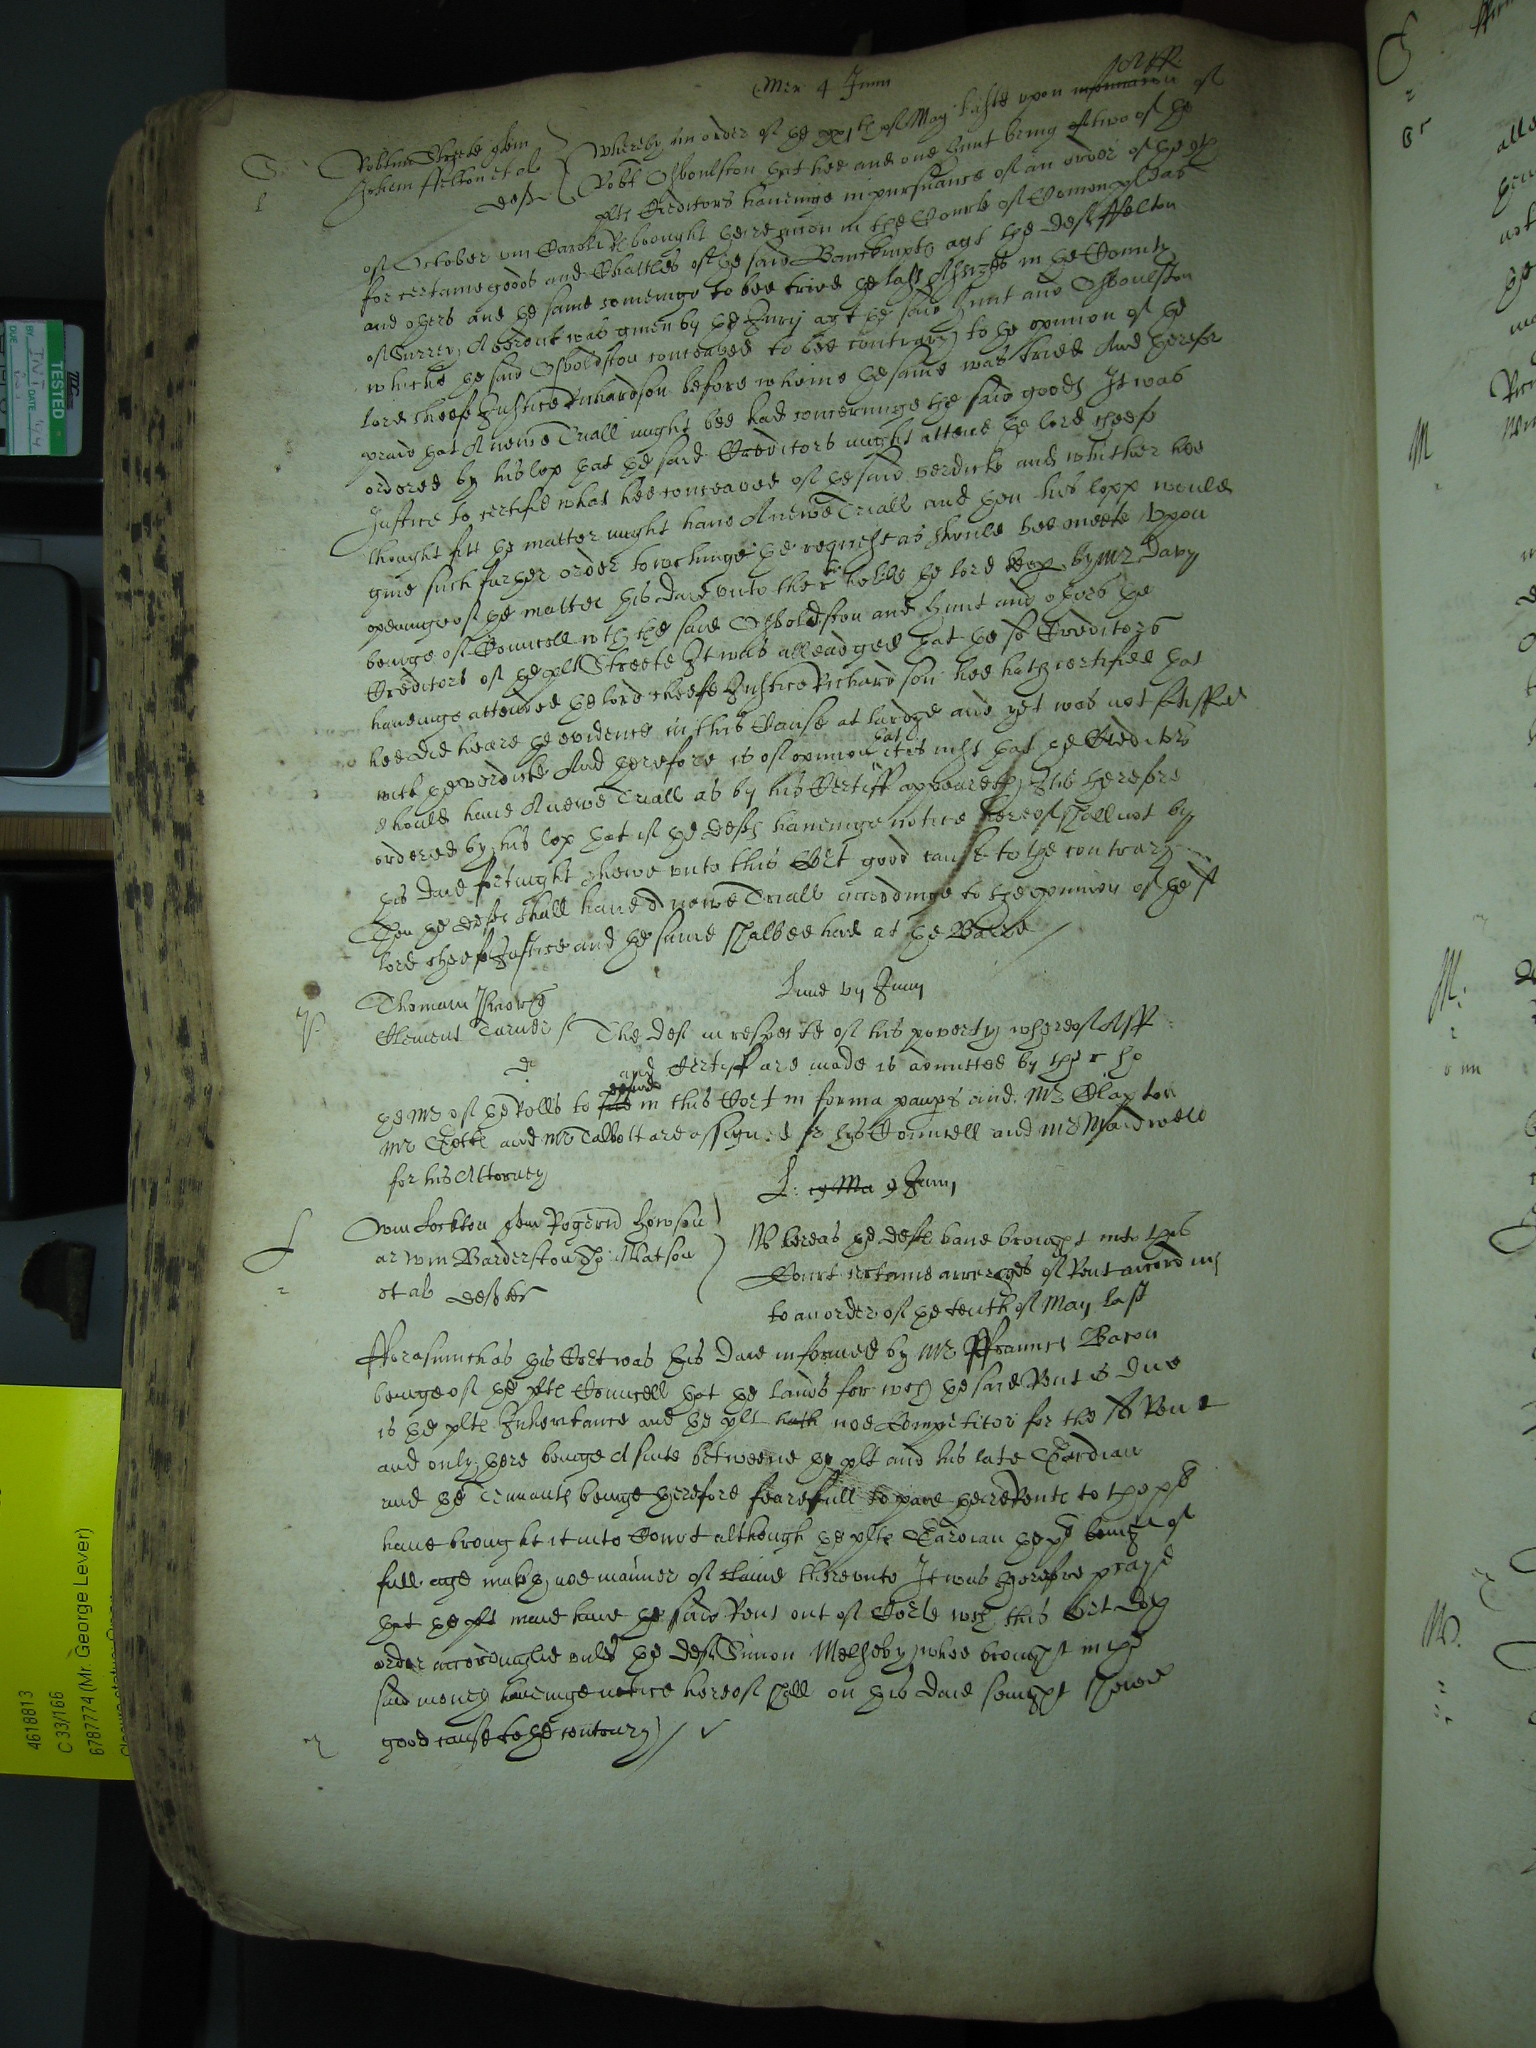 Mer 4 Junii
Robtus Streete quer
Johem Ffelton et al
deft
Whereby an order of the xxjth of May laste upon informacon of
Robt Osboulston that hee and one Hunt being of two of the
plts Creditors haveinge in pursuance of an order of the xth
of October viii Caroli R brought here accon in the Courte of Comon pleas
for certaine goods and Chattles of the said Banckrupts agt the deft Ffelton
and others and the same cominge to bee tried the last Assizes in the County
of Surrey A verdict was given by the Jury agt the said Hunt and Osboulston
which the said Osboldston conceaved to bee contrary to the opinion of the
lord cheefe Justice Richardson before whome the same was tried And therefor
praid that A newe Triall might bee had concerninge the said goods It was
ordered by his lop that the said Creditors might attend the lord cheefe
Justice to certifie what hee conceaved of the said verdicte and whither hee
thought fitt the matter might have A newe Triall and then his lopp would
give such further order towchinge the request as should bee meete Upon
openinge of the matter this daie unto the r ho: the lord keep by Mr Davy
beinge of Councell wth the said Osboldston and Hunt and others the
Creditors of the plt Streete It was alleadged that the sd Creditors
haveinge attended the lord cheefe Justice Richardson hee hath certified that
hee did heare the evidence in this Cause at lardge and yet was not satisfied
with the verdicte And therefore is of opinion that it is just that the Creditors
should have A newe Triall as by his Certiff appeareth, It is therefore
ordered by his lop that if the defts haveinge notice hereof shall not by
this daie fortnight shewe unto this Cort good cause to the contrary
Then the defts shall have A newe Triall accordinge to the opinion of the sd
lord cheefe Justice and the same shalbee had at the Barre
Lune vij Junij
Thomam
Clement Turner
The deft in respecte of his poverty whereof Aff
and Certiff are made is admitted by the r ho
the Mr of the Rolls to defend in this Cort in forma paupis and Mr Clapton
Mr and Mr Talbott are assigned for his Councell and Mr Maidwell
for his Attorney
L: 19 Ma 9 Junij
Wm Lockton quer Rogerid Hewson
ar Wm Barderston Tho: Watson
et al defts
Whereas the defts have brought into this
Court certaine arrerages of Rent according
to an order of the tenth of May last
Fforasmuch as this Cort was this daie informed by Mr Ffrauncs Bacon
beinge of the plts Councell that the lands for wch the said Rent is due
is the plts Inheritance and the plt hath noe Competitor for the sd Rent
and only there beinge A suite betweene the plt and his late Gardian
and the Tennants beinge therefore fearefull to paie there Rents to the plt
have brought it into Court although the plts Gardian the plt being of
full age maketh noe manner of claime thereunto It was therefore praied
that the plt maie have the said Rent out of Corte wch this Cort doth
order accordinglie unles the deft Simon Metheby whoe brought in the
said money haveinge notice hereof shall on this daie senight shewe
good cause to the contrary
TESTED
4618813
C 33/166
6787774 (Mr. George Lever)